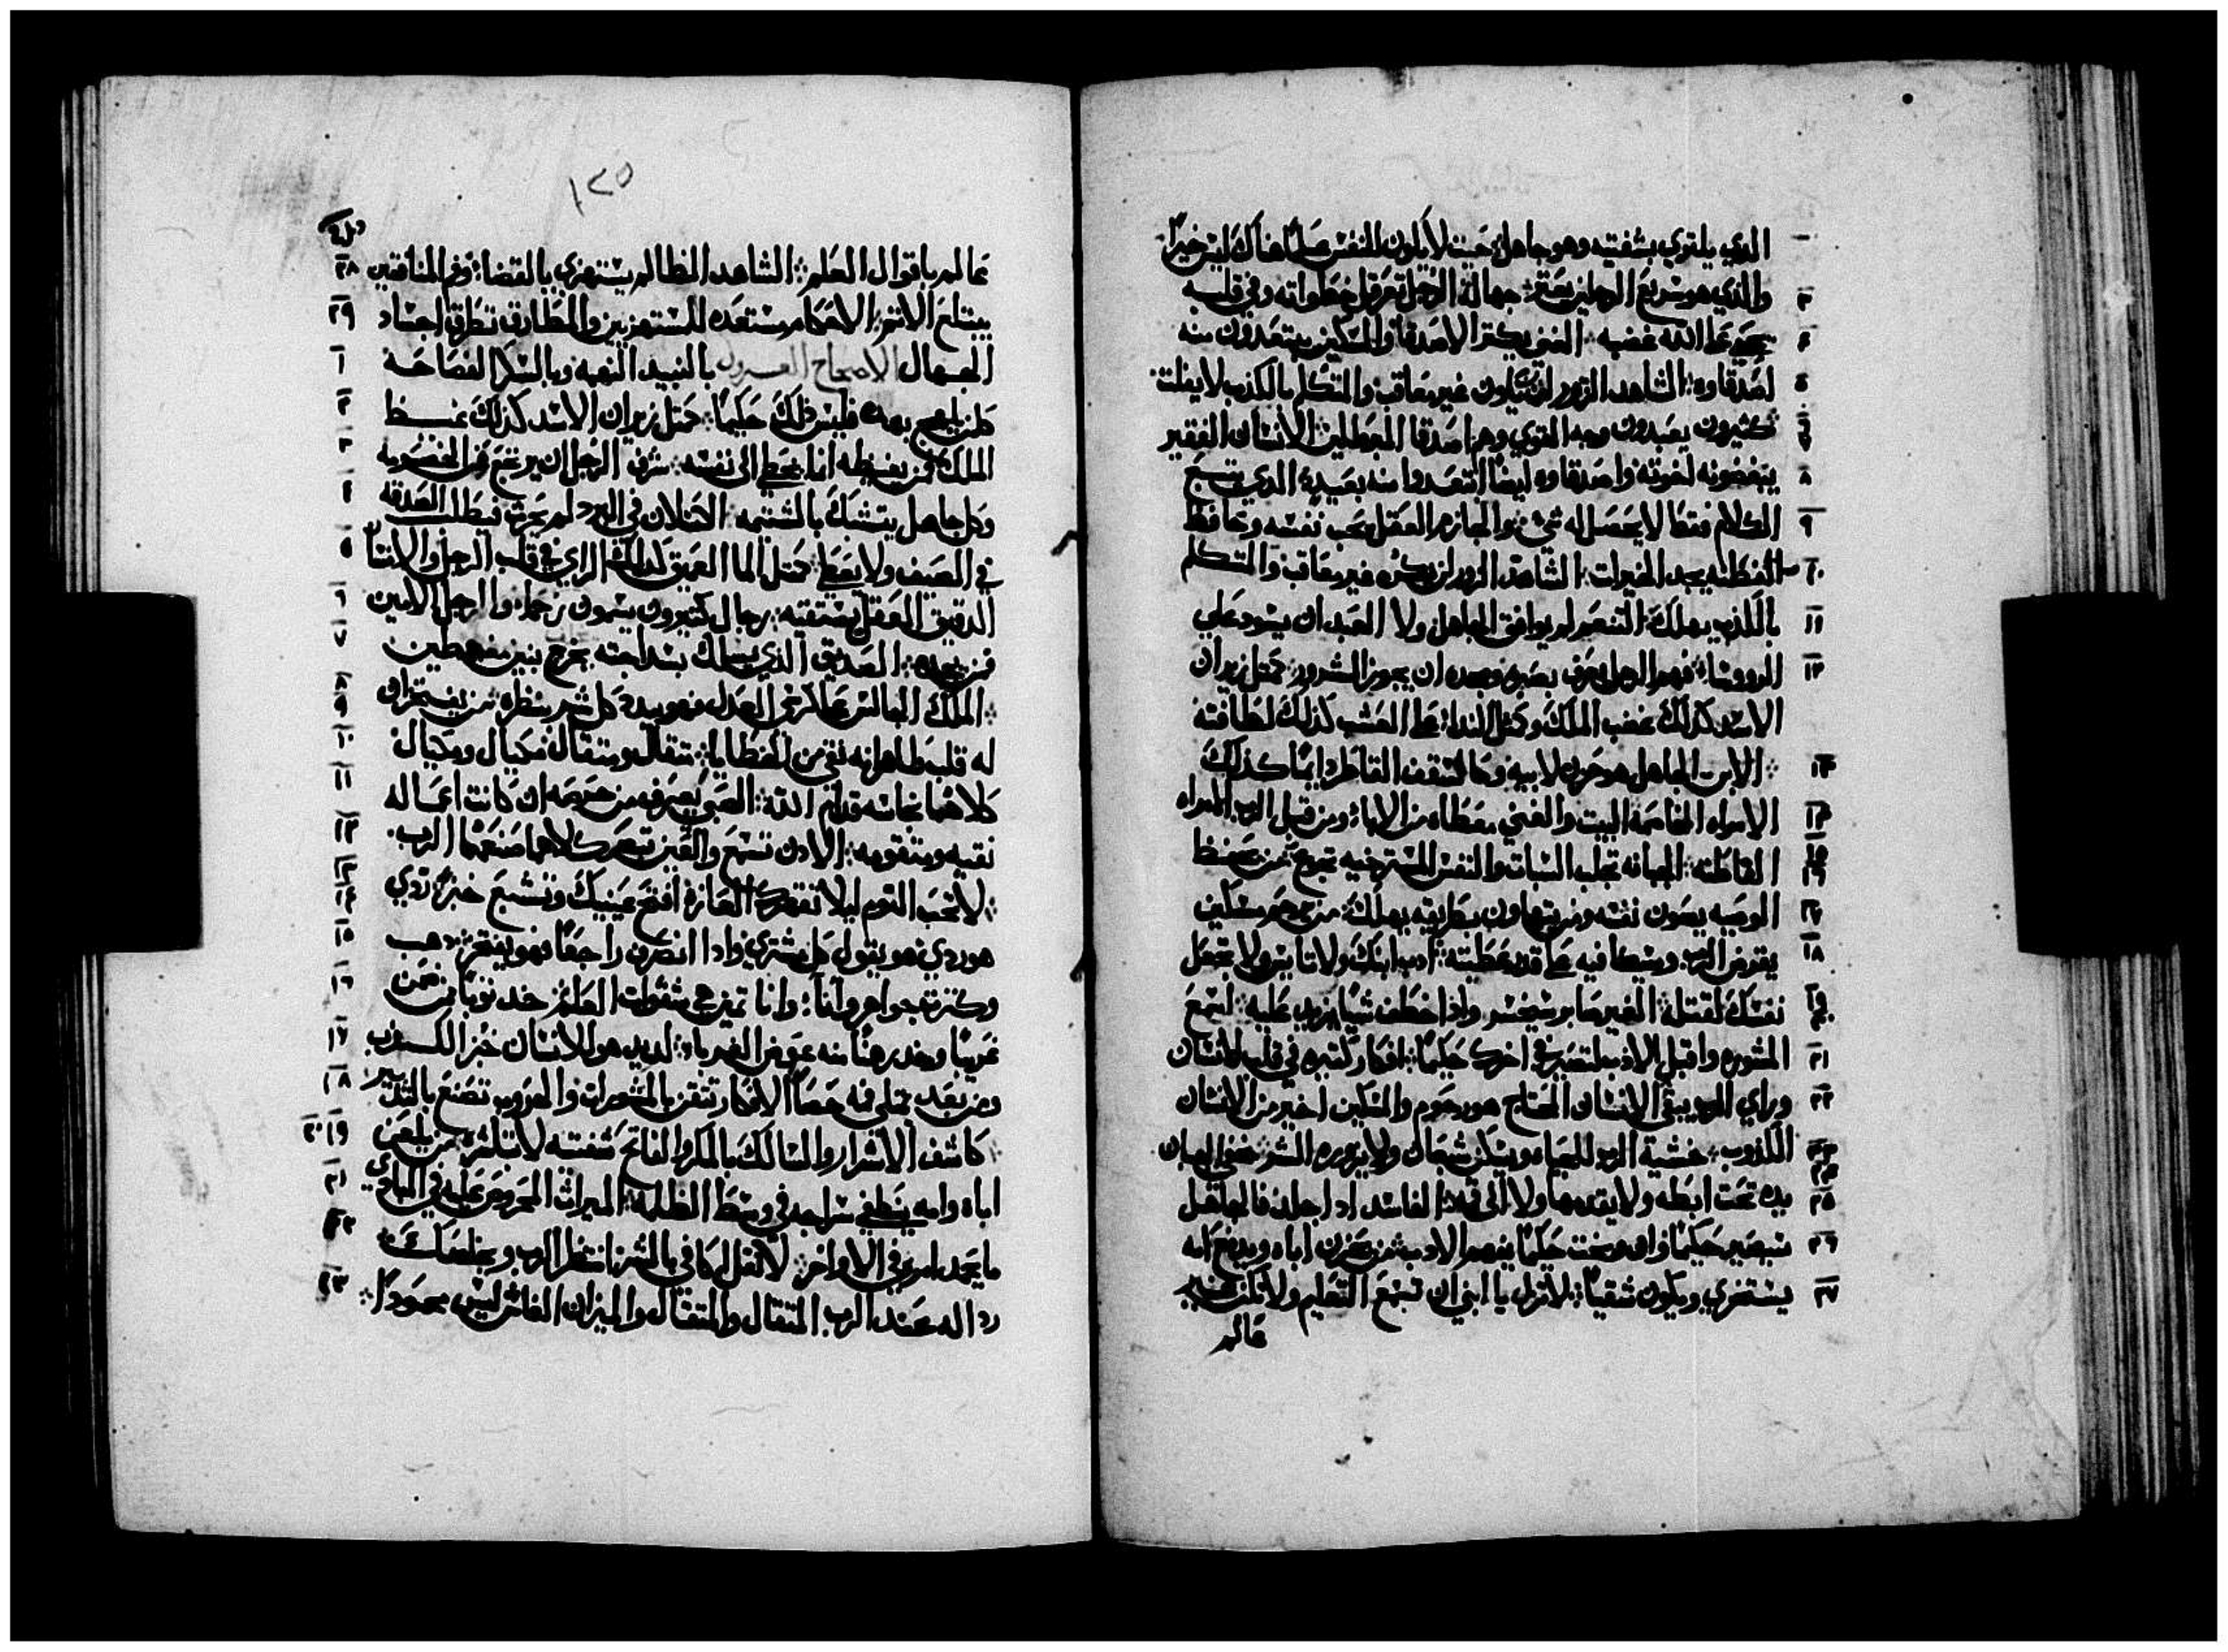 الذي يلتوي بشفتيه وهو جاهل حيت لا يكون للنفس علما هناك ليس خيرا
والذي هو سريع الرجلين يعتر جهالة الرجل تعرقل خطواته وفي قلبه
علي الله غضبه الغني يكتر الاصدقا والمسكين يبتعدون منه
اصدقاوه الشاهد الزور لن يكون غير معاقب والمتكلم بالكدب لا يفلت
كثيرون يعبدون وجه القوي وهم اصدقا المعطي الانسان الفقير
يبغضونه اخوته واصدقاوه ايضا ابتعدوا منه بعيد الذي يتبع
الكلام فقط لا يحصل له شي والحازم العقل يحب نفسه وحافظ
الفطنه يجد الخيرات الشاهد الزور لن يكون غير معاقب والمتكلم
بالكذب يهلك التنعم لم يوافق الجاهل ولا العبد ان يسود علي
الرووسا فهم الرجل يعرف بصبره ومجده ان يجوز الشرور متل زيران
الاسد كذلك غضب الملك ومتل الندا علي العشب كذلك لطافته
الابن الجاهل هو حزن لابيه وكالسقف القاطر دايما كذلك
الامراه المخاصمه البيت والغني معطاه من الابا ومن قبل الرب المراه
العاقله الجبانه تجلب السبات والنفس المسترخيه تجوع من يحفظ
الوصيه يصون نفسه ومن يتهاون بطريقه يهلك من يرحم مسكين
يقرض الرب ويكافيه علي قدر عطيته ادب ابنك ولا تايس ولا تجعل
نفسك لقتله الغير صابر سيخسر واذا خطف شيا يزيد عليه اسمع
المشوره واقبل الادب لتصير في اخرك حكيما افكار كتيره في قلب الانسان
وراي الرب يبقي الانسان المحتاج هو رحوم والمسكين اخير من الانسان
الكذوب خشية الرب للحياه ويسكن شبعان ولا يزوره الشر يخفي الجبان
يده تحت ابطه ولا يقدمها ولا الي فمه الفاسد اذا جلد فالجاهل
سيصير حكيما وان وبخت حكيما يفهم الادب من يحزن اباه ويزعج امه
يستخزي ويكون شقيا لا تزل يا ابني ان تسمع التعليم ولا تكن غير
عالم
١٢٥
عالم باقوال العلم الشاهد الظالم يستهزي بالقضا وفم المنافقين
يبتلع الاتم الاحكام مستعده للمستهزيين والمطارق تطرق اجساد
الجهال الاصحاح العشرون بالنبيد النهبه وبالسكر الفضاحه
كلمن يلهج بهده فليس ذلك حكيما متل زيران الاسد كذلك غيظ
الملك فمن يغيظه انما يخطي الي نفسه شرف الرجل ان يرتجع عن الخصومه
وكل جاهل يتشبك بالشتيمه الكسلان في البرد لم يحرث فيطلب الصدقه
في الصيف ولا يعطي متل الما العميق كذلك الراي في قلب الرجل والانسان
الدقيق العقل يستقيه رجال كتيرون يسمون رحما والرجل الامين
فمن يجده الصديق الذي يسلك بسداجته يخرج بنين مغبوطين
الملك الجالس علي كرسي العدل فهو يبدد كل شر بنظره من يفتخر ان
له قلب طاهر انه نقي من الخطايا متقال ومتقال مكيال ومكيال
كلاهما نجاسه قدام الله الصبي يعرف من حرصه ان كانت اعماله
نقيه ومتقومه الادن تسمع والعين تبصر كلاهما صنعهما الرب
لا تحب النوم ليلا تفتقرك الفاره افتح عينيك وتشبع خبز ردي
هو ردي هو يقول كل مشتري واذا انصرف راجعا فهو يفتخر ذهب
وكثرة جواهر وانا تميز هي شفوات العلم خد توبا ممن ضمن
غريبا وخد رهنا منه عوض الغربا لذيد هو للانسان خبز الكذب
ومن بعد تمتلي فه حصا الافكار تتقن بالمشورات والحروب تصنع بالتدبير
كاشف الاسرار والسالك بالمكر والفاتح شفته لا تباشره من يلعن
اباه وامه ينطفي سراجه في وسط الظلمه الميراث المحروص عليه في البادي
ما يجد البركه في الاواخر لا تقل اكافي بالشر انتظر الرب ويخلصك
رذاله عند الرب المتقال والمتقال والميزان الغاش ليس محمودا